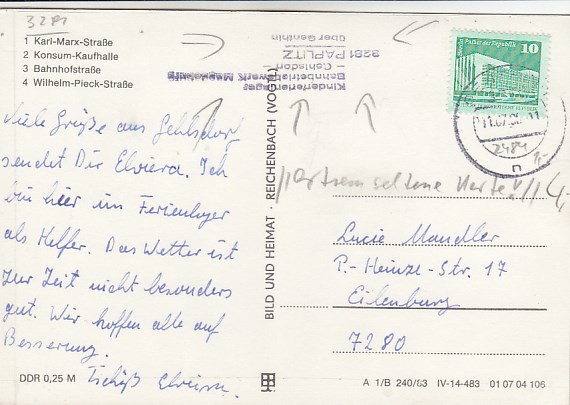 3281
1 Karl-Marx-Straße
2 Konsum-Kaufhalle
3 Bahnhofstraße
4 Wilhelm-Pieck-Straße
Viele Grüße aus Gehlsdorf
sendet Dir Elviera. Ich
bin hier im Ferienlager
als Helfer. Das Wetter ist
zur Zeit nicht besonders
gut. Wir hoffen alle auf
Besserung.
Tschüß Elviera.
DDR 0,25 M
BILD UND HEIMAT · REICHENBACH (VOGTL)
Kinderferienlager
Bahnbetriebswerk
– Gehlsdorf –
3281 PAPLITZ
über Genthin
10
Berlin Palast der Republik
2484
extrem seltene Karte!
Lucie Mandler
P.-Heinze-Str. 17
Eilenburg
7280
A 1/B 240/83 IV-14-483 01 07 04 106